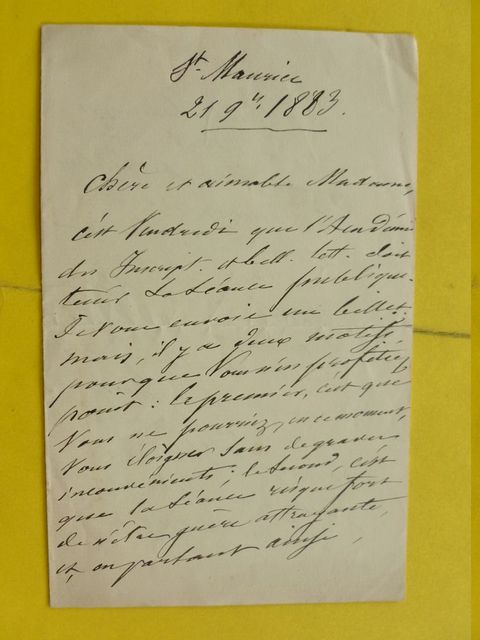 St. Maurice
21 9bre 1883.
Chère et aimable Madame,
c'est Vendredi que l'Académie
des Inscript. et bell. lett. doit
tenir sa séance publique.
Je vous envoie un billet.
mais, il y a deux motifs
pour que Vous n'en profitiez
point : le premier, c'est que
Vous ne pourriez, en ce moment,
Vous éloigner sans de graves
inconvénients ; le second, c'est
que la séance risque fort
de n'être guère attrayante,
et, en partant ainsi,